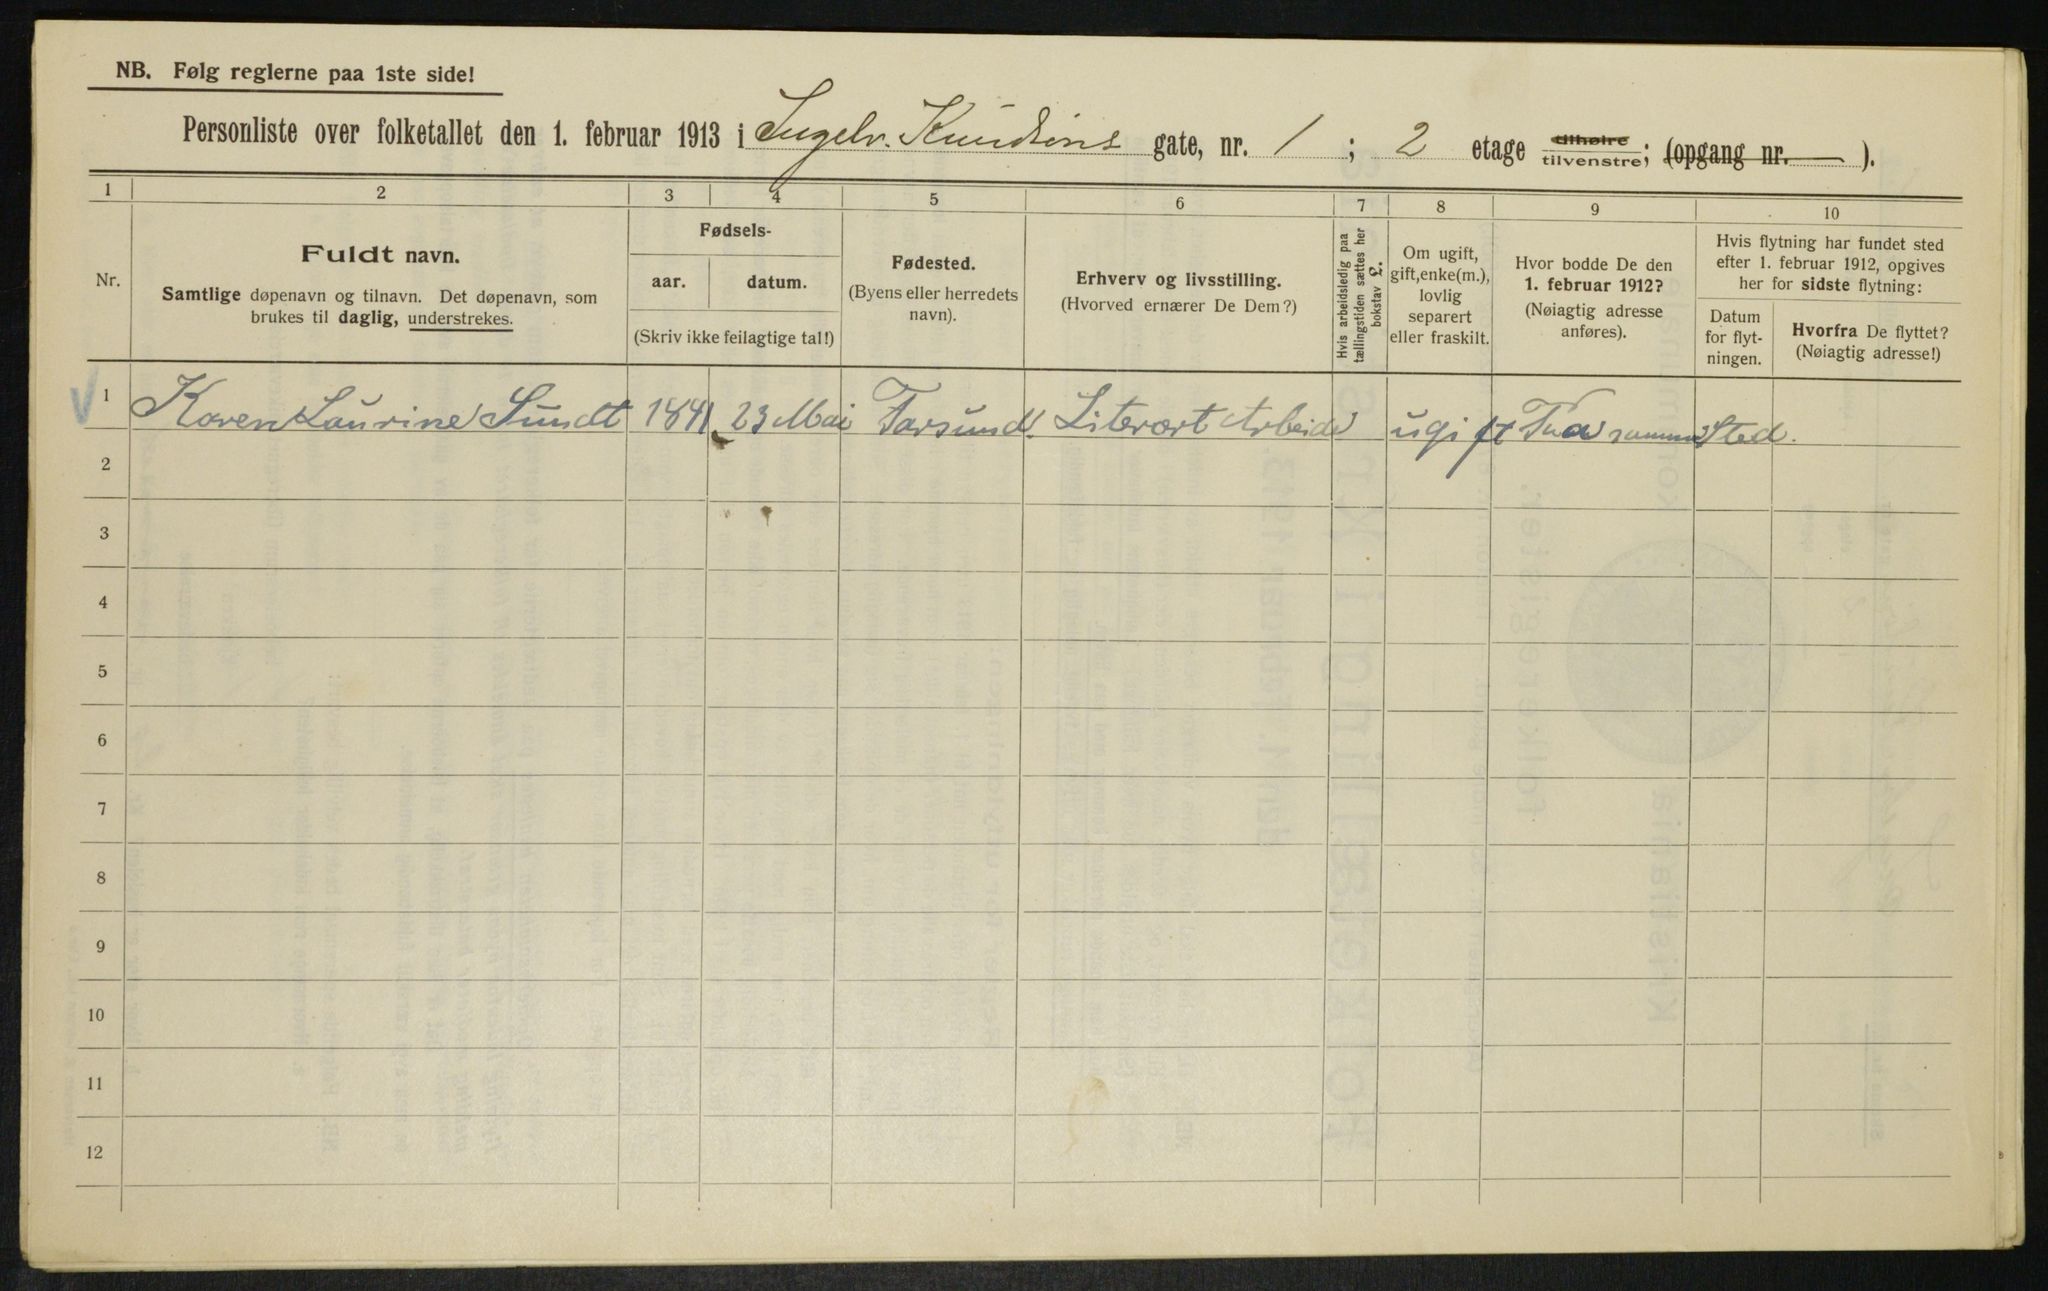 NB. Følg reglerne paa 1ste side!
Personliste over folketallet den 1. februar 1913 i Ingelv. Knudsøns gate, nr. 1 ; 2 etage tilhøire tilvenstre; (opgang nr. — ).
1 2 3 4 5 6 7 8 9 10
Nr.
Fuldt navn.
Samtlige døpenavn og tilnavn. Det døpenavn, som
brukes til daglig, understrekes.
Fødsels-
aar. datum.
(Skriv ikke feilagtige tal!)
Fødested.
(Byens eller herredets
navn).
Erhverv og livsstilling.
(Hvorved ernærer De Dem?)
Hvis arbeidsledig paa
tællingstiden sættes her
bokstav L.
Om ugift,
gift, enke(m.),
lovlig
separert
eller fraskilt.
Hvor bodde De den
1. februar 1912?
(Nøiagtig adresse
anføres).
Hvis flytning har fundet sted
efter 1. februar 1912, opgives
her for sidste flytning:
Datum
for flyt-
ningen.
Hvorfra De flyttet?
(Nøiagtig adresse!)
1 Karen Laurine Sundt 1841 23 Mai Farsund. Literært Arbeide ugift Paa samme Sted.
2
3
4
5
6
7
8
9
10
11
12